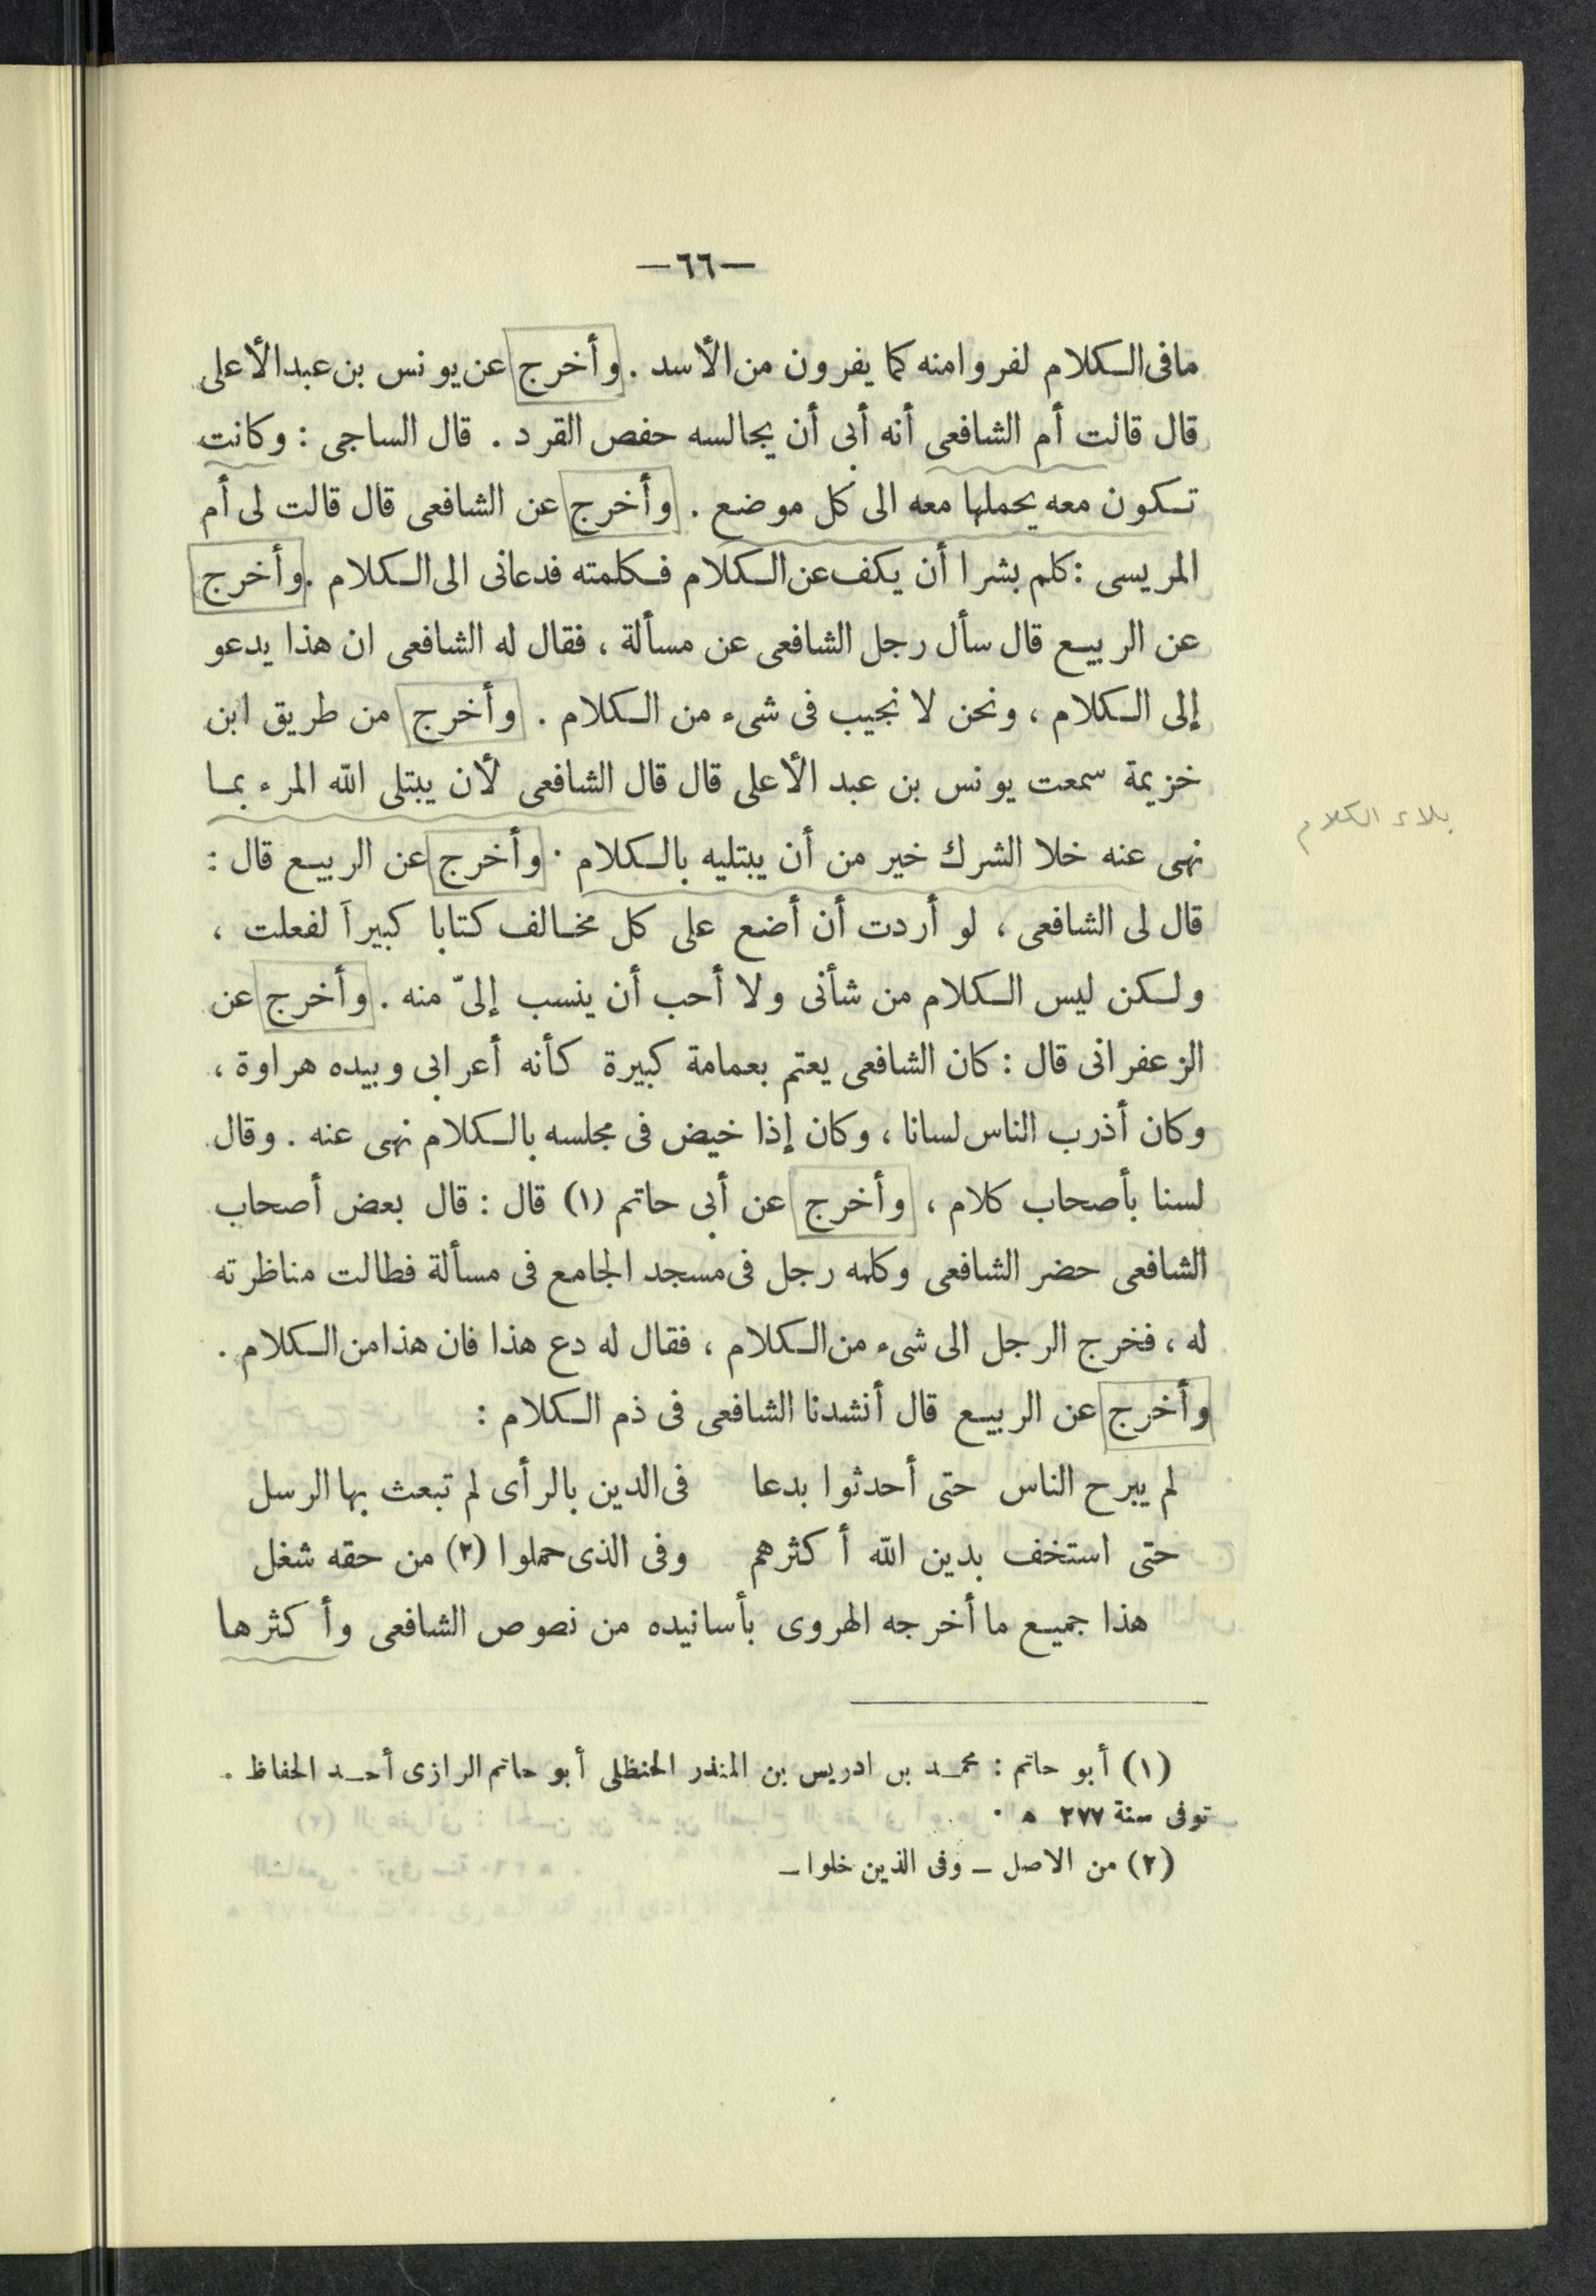 —٦٦—
مافى الكلام لفروا منه كما يفرون من الأسد . وأخرج عن يونس بن عبد الأعلى
قال قالت أم الشافعى أنه أبى أن يجالسه حفص القرد . قال الساجى : وكانت
تكون معه يحملها معه الى كل موضع . وأخرج عن الشافعى قال قالت لى أم
المريسى : كلم بشرا أن يكف عن الكلام فكلمته فدعانى الى الكلام . وأخرج
عن الربيع قال سأل رجل الشافعى عن مسألة ، فقال له الشافعى ان هذا يدعو
إلى الكلام ، ونحن لا نجيب فى شىء من الكلام . وأخرج من طريق ابن
خزيمة سمعت يونس بن عبد الأعلى قال قال الشافعى لأن يبتلى الله المرء بما
بلاء الكلام
نهى عنه خلا الشرك خير من أن يبتليه بالكلام . وأخرج عن الربيع قال :
قال لى الشافعى ، لو أردت أن أضع على كل مخالف كتابا كبيراً لفعلت ،
ولكن ليس الكلام من شأنى ولا أحب أن ينسب إلىّ منه . وأخرج عن
الزعفرانى قال : كان الشافعى يعتم بعمامة كبيرة كأنه أعرابى وبيده هراوة ،
وكان أذرب الناس لسانا ، وكان إذا خيض فى مجلسه بالكلام نهى عنه . وقال
لسنا بأصحاب كلام ، وأخرج عن أبى حاتم (١) قال : قال بعض أصحاب
الشافعى حضر الشافعى وكلمه رجل فى مسجد الجامع فى مسألة فطالت مناظرته
له ، فخرج الرجل الى شىء من الكلام ، فقال له دع هذا فان هذا من الكلام .
وأخرج عن الربيع قال أنشدنا الشافعى فى ذم الكلام :
لم يبرح الناس حتى أحدثوا بدعا فى الدين بالرأى لم تبعث بها الرسل
حتى استخف بدين الله أكثرهم وفى الذى حملوا (٢) من حقه شغل
هذا جميع ما أخرجه الهروى بأسانيده من نصوص الشافعى وأكثرها
(١) أبو حاتم : محمد بن ادريس بن المنذر الحنظلى أبو حاتم الرازى أحد الحفاظ .
توفى سنة ٢٧٧ ه .
(٢) من الاصل ــ وفى الذين خلوا ــ